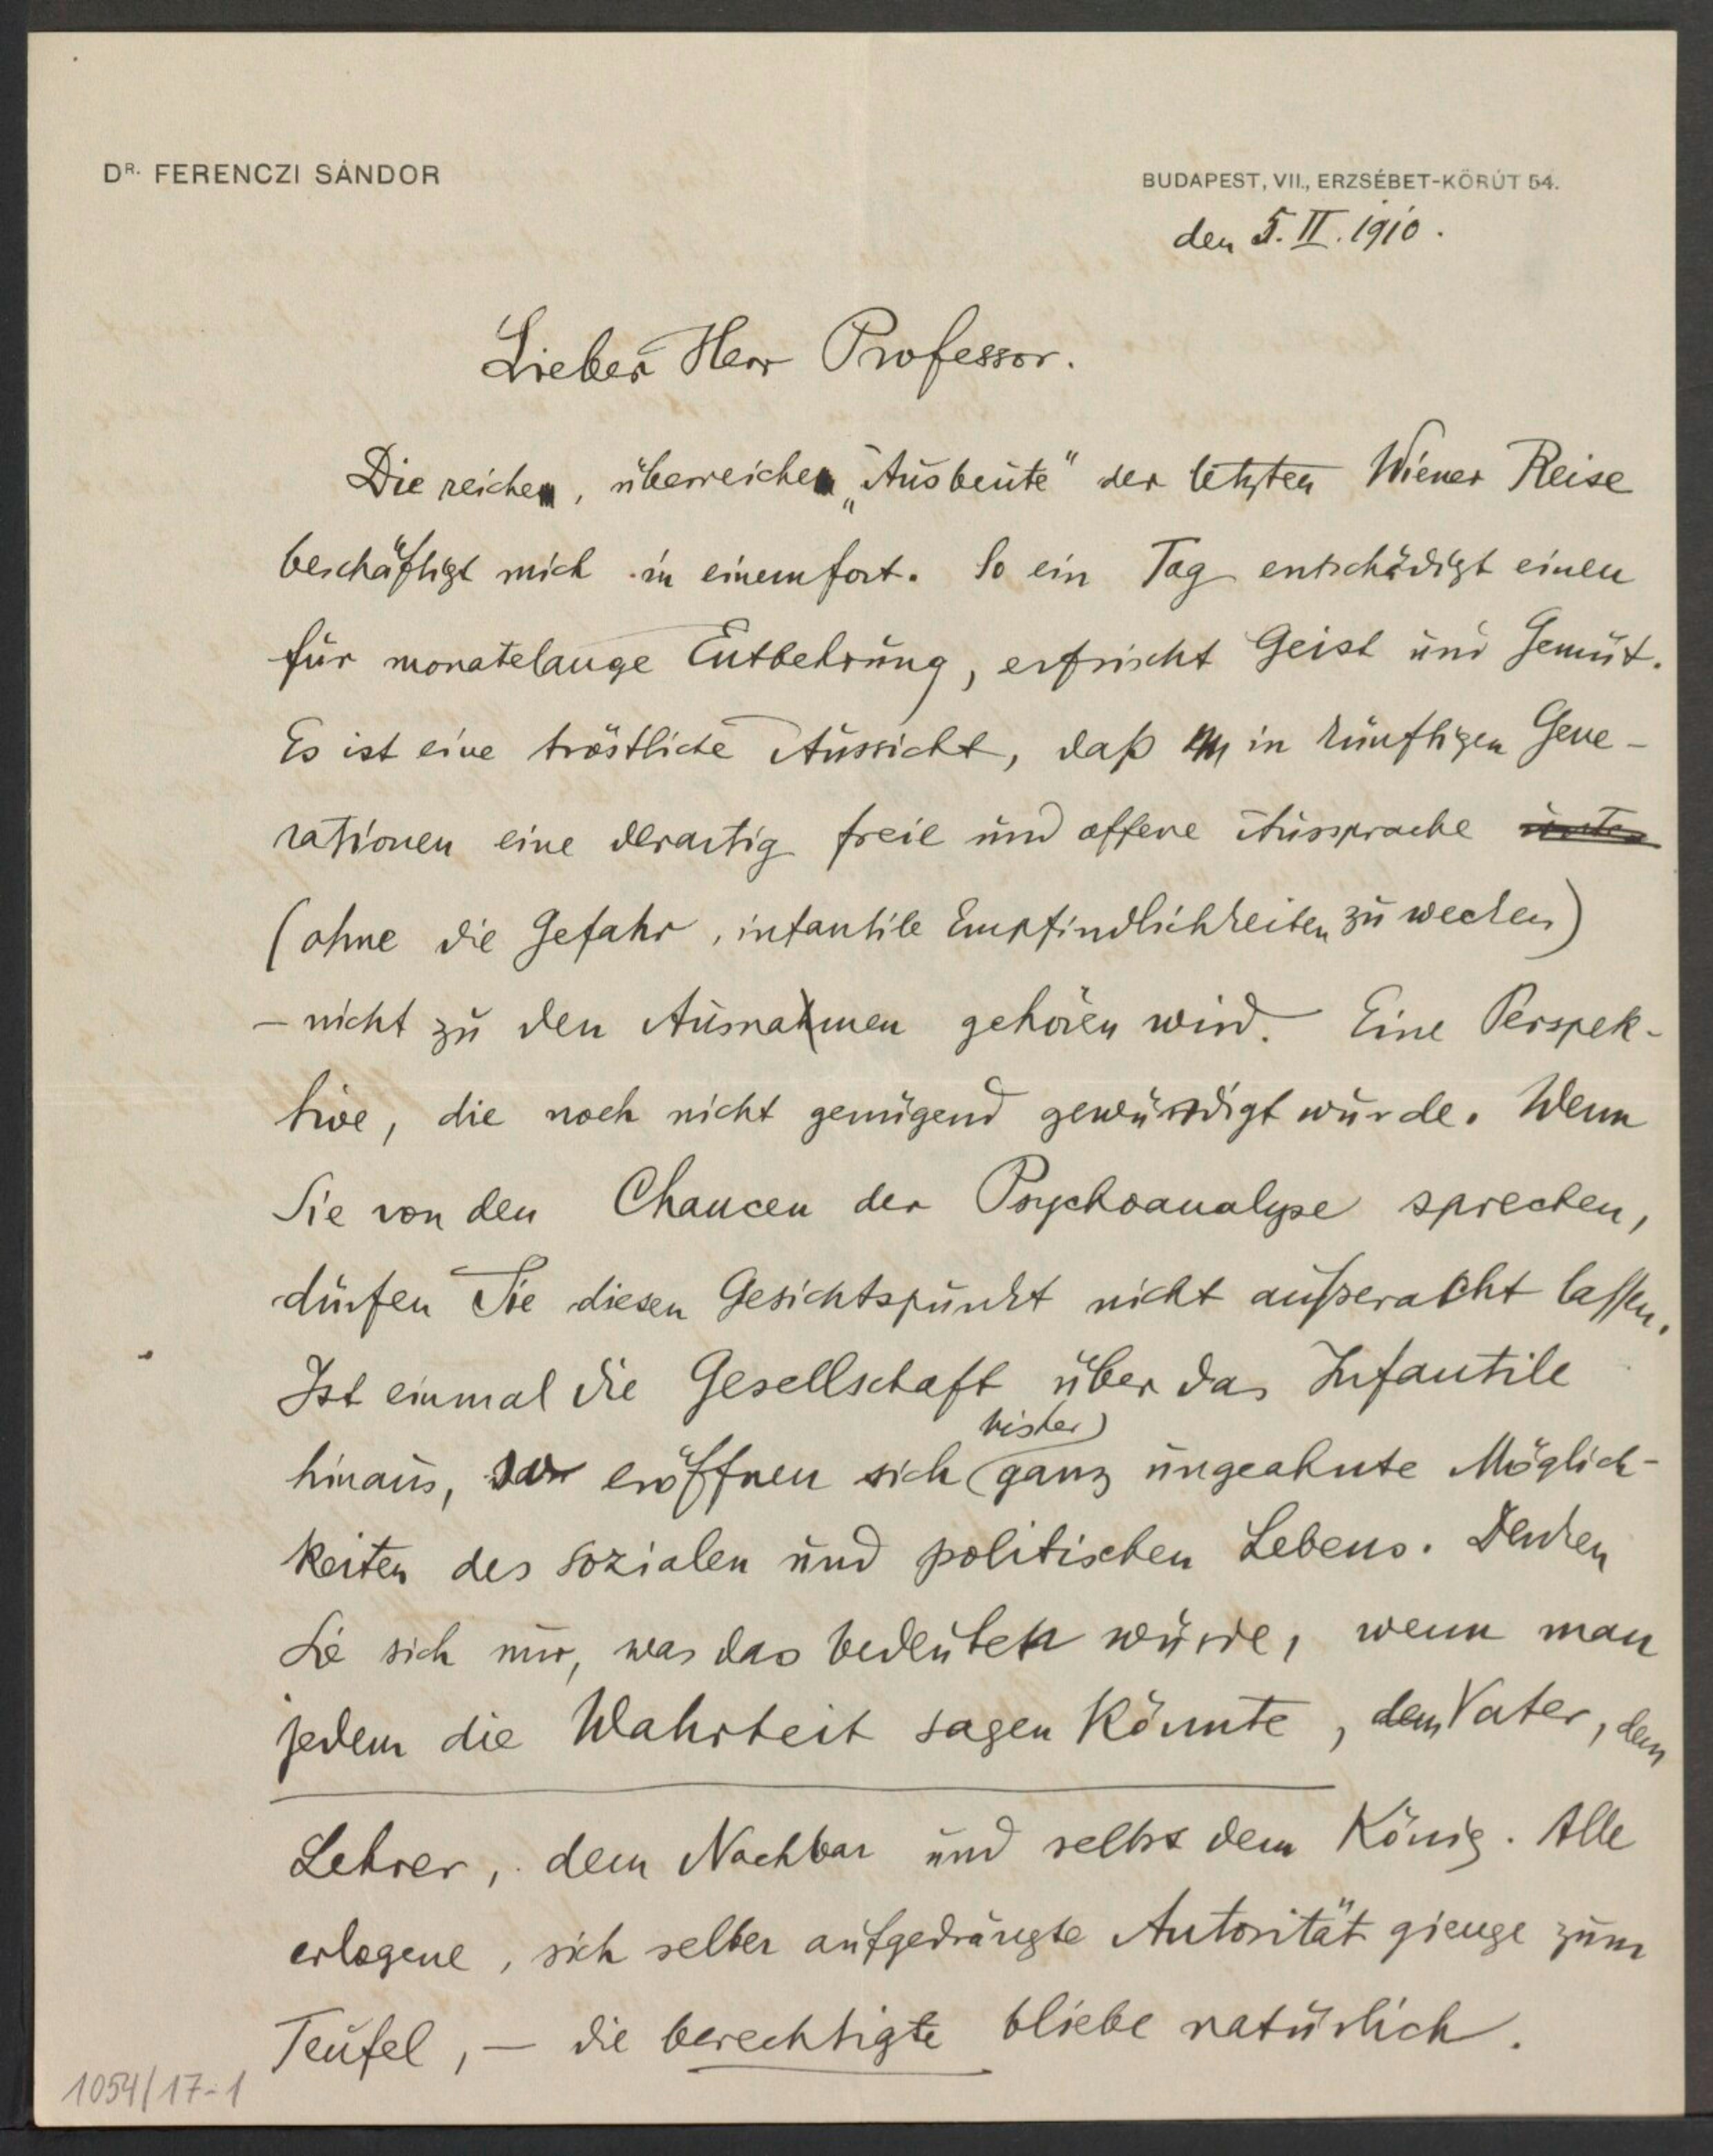 DR. FERENCZI SÁNDOR
BUDAPEST, VII., ERZSÉBET-KÖRÚT 54.
den 5. II. 1910.
Lieber Herr Professor.
Die reiche, überreiche „Ausbeute" der letzten Wiener Reise
beschäftigt mich in einemfort. So ein Tag entschädigt einen
für monatelange Entbehrung, erfrischt Geist und Gemüt.
Es ist eine tröstliche Aussicht, daß in künftigen Gene-
rationen eine derartig freie und offene Aussprache
(ohne die Gefahr, infantile Empfindlichkeiten zu wecken)
– nicht zu den Ausnahmen gehören wird. Eine Perspek-
tive, die noch nicht genügend gewürdigt wurde. Wenn
Sie von den Chancen der Psychoanalyse sprechen,
dürfen Sie diesen Gesichtspunkt nicht außeracht lassen.
Ist einmal die Gesellschaft über das Infantile
bisher
hinaus, so eröffnen sich ganz ungeahnte Möglich-
keiten des sozialen und politischen Lebens. Denken
Sie sich nur, was das bedeuten würde, wenn man
jedem die Wahrheit sagen könnte, dem Vater, dem
Lehrer, dem Nachbar und selbst dem König. Alle
erlogene, sich selber aufgedrängte Autorität gienge zum
Teufel, – die berechtigte bliebe natürlich.
1054/17-1